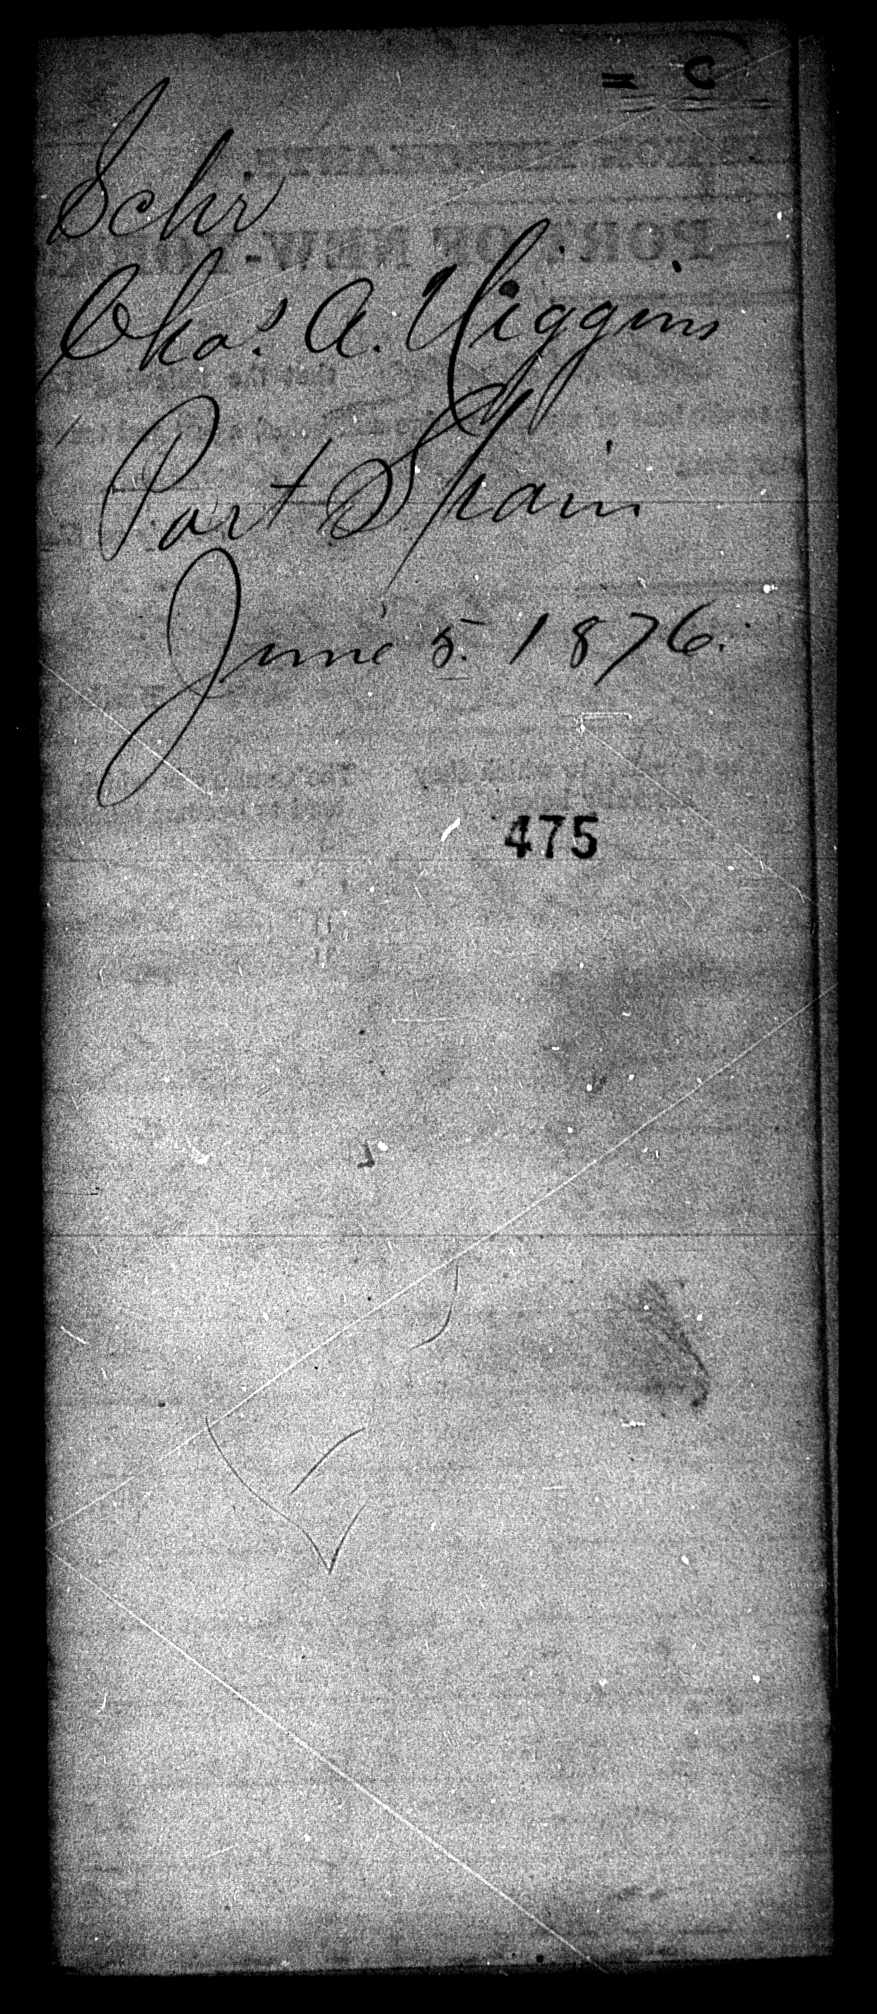 = C
Schr
Chas. A. Higgins
Port Spain
June 5. 1876.
475